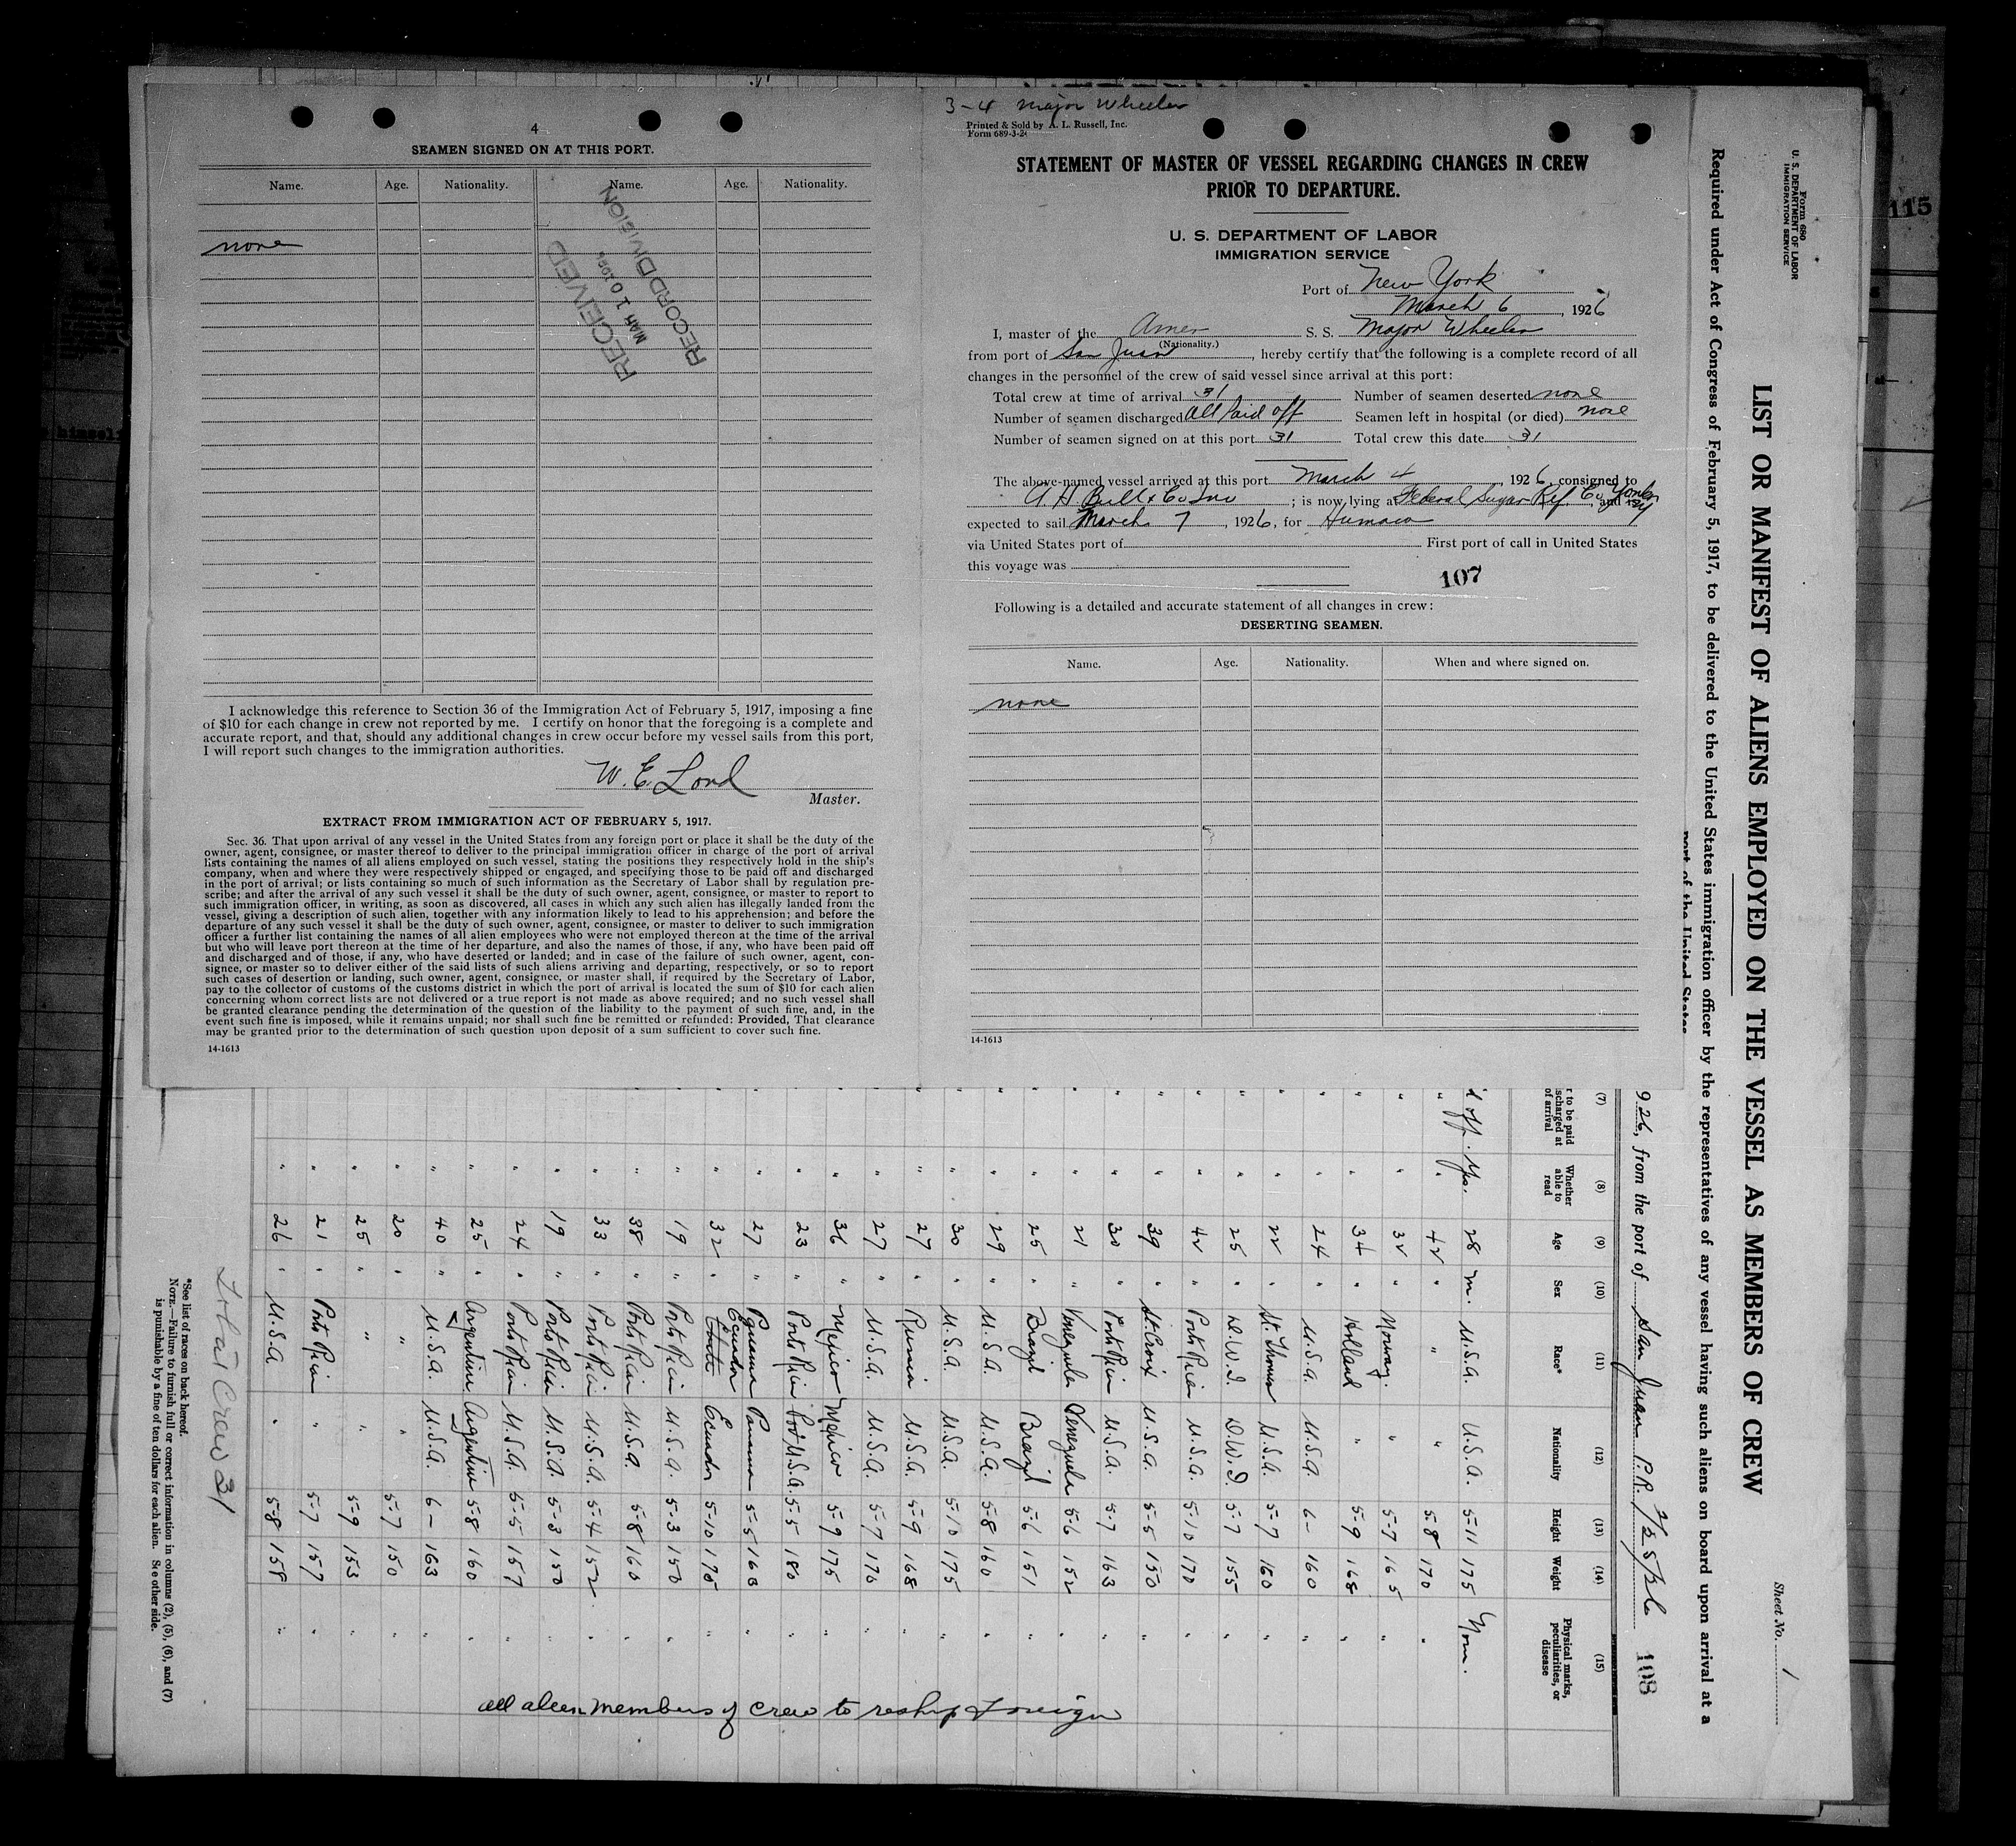 4
SEAMEN SIGNED ON AT THIS PORT.
Name. Age. Nationality. Name. Age. Nationality.
none
RECEIVED
MAR 10 192
RECORD DIVISION
I acknowledge this reference to Section 36 of the Immigration Act of February 5, 1917, imposing a fine
of $10 for each change in crew not reported by me. I certify on honor that the foregoing is a complete and
accurate report, and that, should any additional changes in crew occur before my vessel sails from this port,
I will report such changes to the immigration authorities.
W. E. Lord
Master.
EXTRACT FROM IMMIGRATION ACT OF FEBRUARY 5, 1917.
Sec. 36. That upon arrival of any vessel in the United States from any foreign port or place it shall be the duty of the
owner, agent, consignee, or master thereof to deliver to the principal immigration officer in charge of the port of arrival
lists containing the names of all aliens employed on such vessel, stating the positions they respectively hold in the ship's
company, when and where they were respectively shipped or engaged, and specifying those to be paid off and discharged
in the port of arrival; or lists containing so much of such information as the Secretary of Labor shall by regulation pre-
scribe; and after the arrival of any such vessel it shall be the duty of such owner, agent, consignee, or master to report to
such immigration officer, in writing, as soon as discovered, all cases in which any such alien has illegally landed from the
vessel, giving a description of such alien, together with any information likely to lead to his apprehension; and before the
departure of any such vessel it shall be the duty of such owner, agent, consignee, or master to deliver to such immigration
officer a further list containing the names of all alien employees who were not employed thereon at the time of the arrival
but who will leave port thereon at the time of her departure, and also the names of those, if any, who have been paid off
and discharged and of those, if any, who have deserted or landed; and in case of the failure of such owner, agent, con-
signee, or master so to deliver either of the said lists of such aliens arriving and departing, respectively, or so to report
such cases of desertion or landing, such owner, agent, consignee, or master shall, if required by the Secretary of Labor,
pay to the collector of customs of the customs district in which the port of arrival is located the sum of $10 for each alien
concerning whom correct lists are not delivered or a true report is not made as above required; and no such vessel shall
be granted clearance pending the determination of the question of the liability to the payment of such fine, and, in the
event such fine is imposed, while it remains unpaid; nor shall such fine be remitted or refunded: Provided, That clearance
may be granted prior to the determination of such question upon deposit of a sum sufficient to cover such fine.
14-1613
3-4 Major Wheeler
Printed & Sold by A. L. Russell, Inc.
Form 689-3-2
STATEMENT OF MASTER OF VESSEL REGARDING CHANGES IN CREW
PRIOR TO DEPARTURE.
U. S. DEPARTMENT OF LABOR
IMMIGRATION SERVICE
Port of New York
March 6, 1926
I, master of the Amer S. S. Major Wheeler
(Nationality.)
from port of San Juan, hereby certify that the following is a complete record of all
changes in the personnel of the crew of said vessel since arrival at this port:
Total crew at time of arrival 31 Number of seamen deserted none
Number of seamen discharged All Paid off Seamen left in hospital (or died) none
Number of seamen signed on at this port 31 Total crew this date 31
The above-named vessel arrived at this port March 4, 1926, consigned to
A H Bull & Co Inc; is now lying at Federal Sugar Ref. Co Yonkers NY and is
expected to sail March 7, 1926, for Humaco
via United States port of First port of call in United States
this voyage was
107
Following is a detailed and accurate statement of all changes in crew:
DESERTING SEAMEN.
Name. Age. Nationality. When and where signed on.
none
14-1613
115
Form 680
U. S. DEPARTMENT OF LABOR
IMMIGRATION SERVICE
Sheet No. 1
LIST OR MANIFEST OF ALIENS EMPLOYED ON THE VESSEL AS MEMBERS OF CREW
Required under Act of Congress of February 5, 1917, to be delivered to the United States immigration officer by the representatives of any vessel having such aliens on board upon arrival at a
port of the United States
926, from the port of San Juan P.R. 2/25/26
108
(7) (8) (9) (10) (11) (12) (13) (14) (15)
r to be paid
scharged at
of arrival
Whether able to read
Age Sex Race* Nationality Height Weight
Physical marks, peculiarities, or disease
d off. Yes. 28 m. U.S.A. U.S.A. 5-11 175 None.
" " 42 " " " 5-8 170 "
" " 32 " Norway. " 5-7 165 "
" " 34 " Holland " 5-9 168 "
" " 24 " U.S.A. U.S.A. 6- 160 "
" " 22 " St. Thomas U.S.A. 5-7 160 "
" " 25 " D.W.I. D.W.I. 5-7 155 "
" " 42 " Porto Rico U.S.A. 5-10 170 "
" " 39 " St. Croix U.S.A. 5-5 150 "
" " 30 " Porto Rico U.S.A. 5-7 163 "
" " 21 " Venezuela Venezuela 5-6 152 "
" " 25 " Brazil Brazil 5-6 151 "
" " 29 " U.S.A. U.S.A. 5-8 160 "
" " 30 " U.S.A. U.S.A. 5-10 175 "
" " 27 " Russia U.S.A. 5-9 168 "
" " 27 " U.S.A. U.S.A. 5-7 170 "
" " 36 " Mexico Mexico 5-9 175 "
" " 23 " Porto Rico U.S.A. 5-5 180 "
" " 27 " Panama Panama 5-5 163 "
" " 32 " Ecuador Ecuador 5-10 178 "
" " 19 " Porto Rico U.S.A. 5-3 150 "
" " 38 " Porto Rico U.S.A. 5-8 160 "
" " 33 " Porto Rico U.S.A. 5-4 152 "
" " 19 " Porto Rico U.S.A. 5-3 150 "
" " 24 " Porto Rico U.S.A. 5-5 157 "
" " 25 " Argentine Argentine 5-8 160 "
" " 40 " U.S.A. U.S.A. 6- 163 "
" " 20 " " " 5-7 150 "
" " 25 " " " 5-9 153 "
" " 21 " Porto Rico " 5-7 157 "
" " 26 " U.S.A. " 5-8 158 "
Total Crew 31
all alien members of crew to reship foreign
*See list of races on back hereof.
NOTE.—Failure to furnish full or correct information in columns (2), (5), (6), and (7)
is punishable by a fine of ten dollars for each alien. See other side.